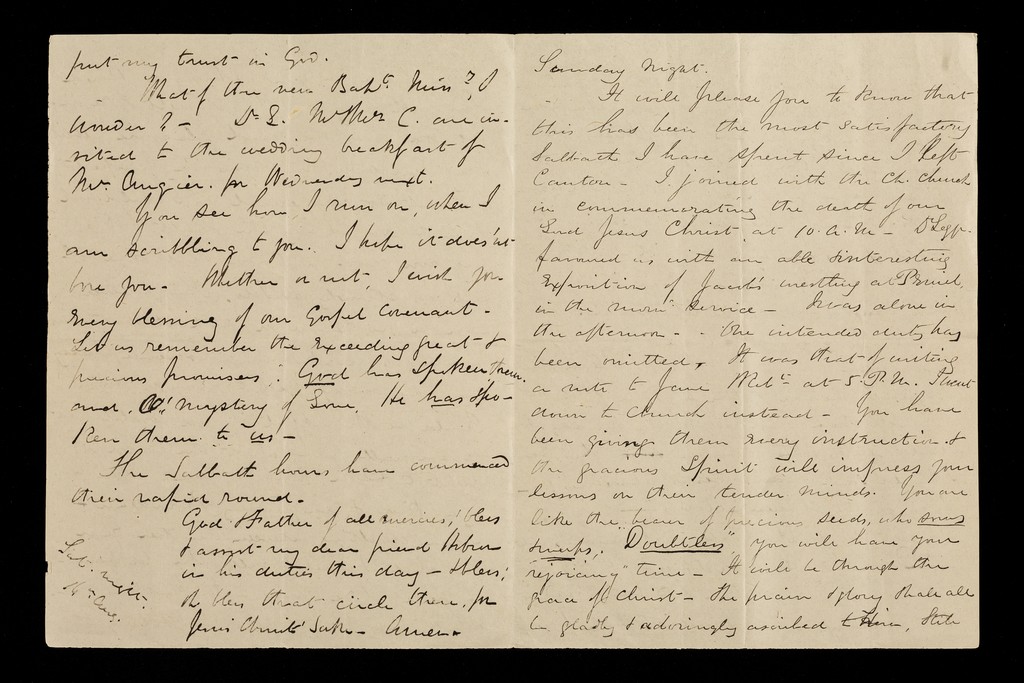 put my trust in God.
What of the new Bapt. Miss?, I
wonder? - Dr L. Mr & Mrs C. are in-
vited to the wedding breakfast of
Mr. Angier. for Wednesday next.
You see how I run on, when I
am scribbling to you. I hope it does'nt
bore you - Whether or not, I wish you
every blessing of our Gospel Covenant -
Let us remember the exceeding great &
precious promises; God has spoken them
and, O! mystery of Love, He has spo-
ken them to us -
The Sabbath hours have commenced
their rapid round -
God & Father of all mercies! bless
& assist my dear friend
in his duties this day - & bless;
Oh bless that circle there, for
Jesus Christs' Sake - Amen -
Sab.
Sunday Night.
It will please you to know that
this has been the most satisfactory
Sabbath I have spent since I left
Canton - I joined with the Ch. Church
in commemorating the death of our
Lord Jesus Christ at 10. A.M - Dr Legge
favoured us with an able & interesting
exposition of Jacob's wrestling at Peniel,
in the morng service - I was alone in
the afternoon - - One intended duty has
been omitted, It was that of writing
a note to Jane at 5. P.M. I went
down to Church instead - You have
been giving them every instruction &
the gracious Spirit will impress your
lessons on their tender minds. You are
like the bearer of precious seeds, who sows
& weeps. "Doubtless" you will have your
"rejoicing" time - It will be through the
grace of Christ - The praise & glory shall all
be gladly & adoringly ascribed to Him,